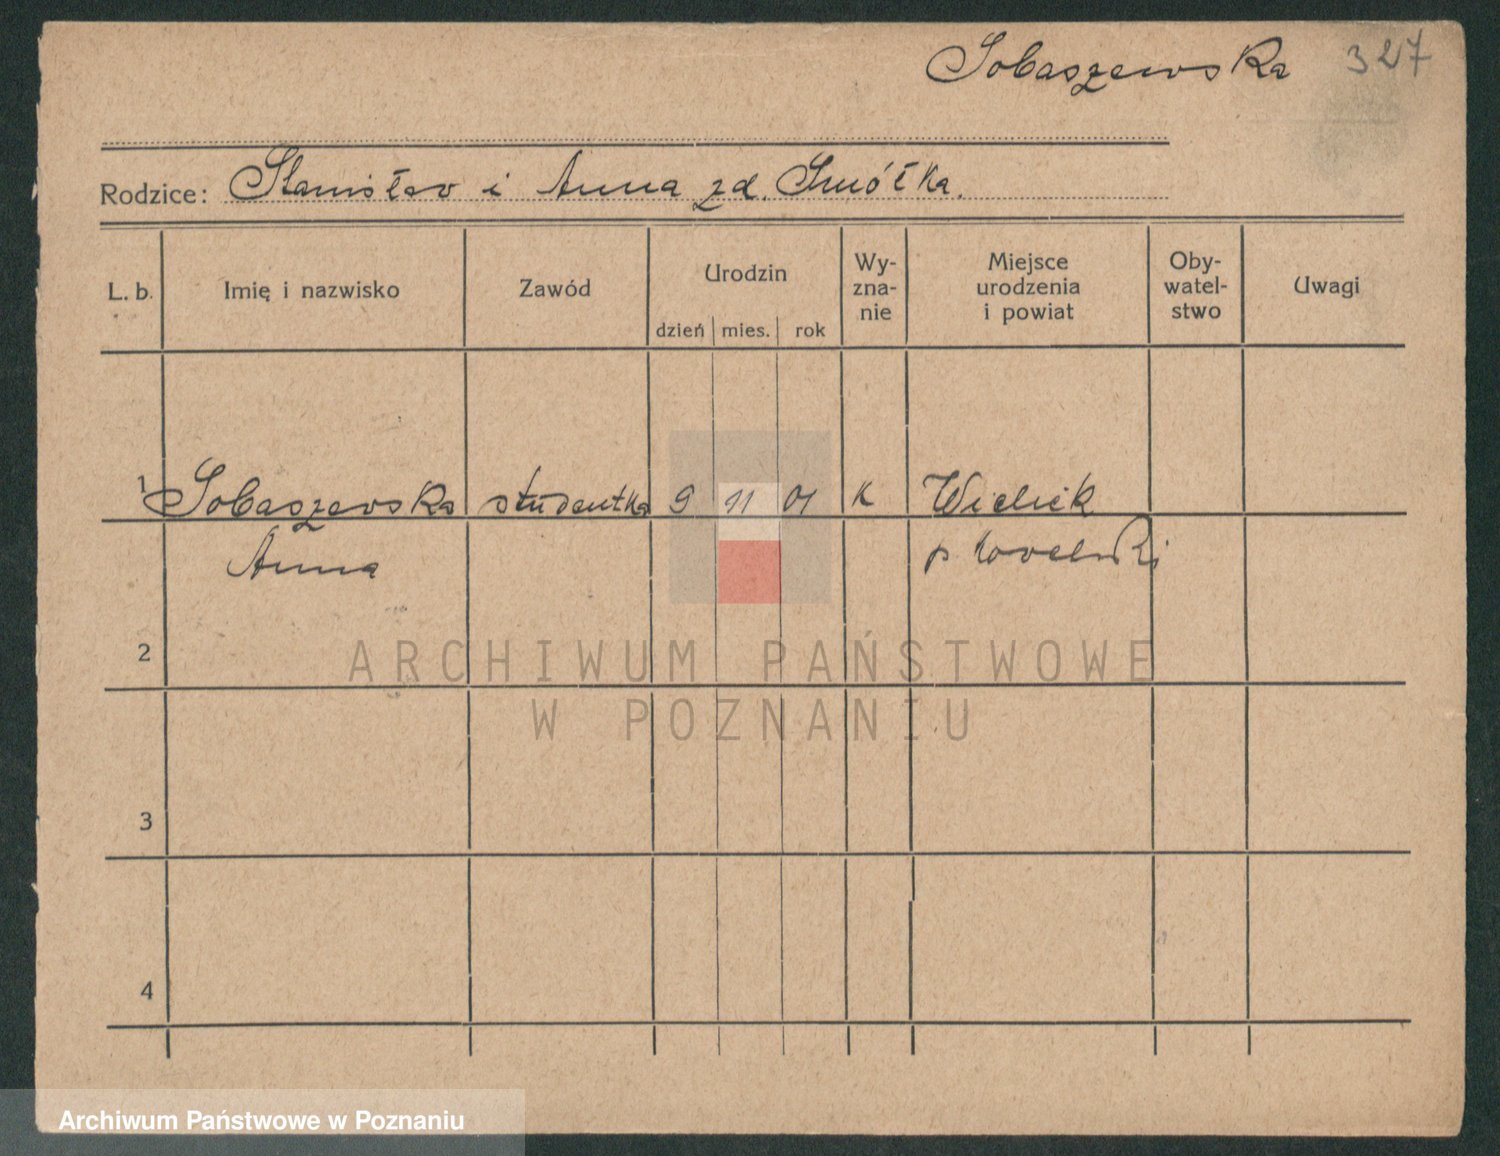 Sobaszewska 327
Rodzice: Stanisław i Anna zd. Smółka.
L. b. Imię i nazwisko Zawód Urodzin dzień mies. rok Wy- zna- nie Miejsce urodzenia i powiat Oby- watel- stwo Uwagi
1 Sobaszewska studentka 9 11 01 K Wielick
Anna p kowelski
2
3
4
ARCHIWUM PAŃSTWOWE
W POZNANIU
Archiwum Państwowe w Poznaniu